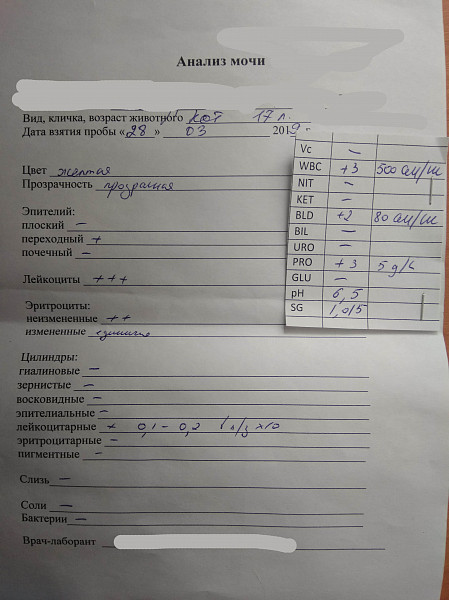 Анализ мочи
Вид, кличка, возраст животного кот 17 л.
Дата взятия пробы «28» 03 2019 г.
Цвет желтая
Прозрачность прозрачная
Эпителий:
плоский –
переходный +
почечный –
Лейкоциты +++
Эритроциты:
неизмененные ++
измененные единичн
Цилиндры:
гиалиновые –
зернистые –
восковидные –
эпителиальные –
лейкоцитарные + 0,1 – 0,2 в п/з х10
эритроцитарные –
пигментные –
Слизь –
Соли –
Бактерии –
Врач-лаборант
Vc –
WBC +3 500
NIT –
KET –
BLD +2 80
BIL –
URO –
PRO +3 5 g/L
GLU –
pH 6,5
SG 1,015